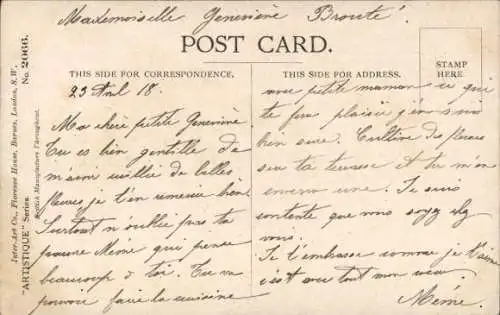 Mademoiselle Geneviève Brouté
POST CARD.
THIS SIDE FOR CORRESPONDENCE.
THIS SIDE FOR ADDRESS.
STAMP
HERE
23 18.
Ma chère petite Geneviève
Tu es bien gentille de
m'avoir cueillie de belles
fleurs je t'en remercie bien
Surtout n'oublie pas ta
pauvre Mème qui pense
beaucoup à toi. Tu va
pouvoir faire la cuisine
avec petite maman ce qui
te fera plaisir j'en suis
bien sure. Cultive des fleurs
sur ta terrasse et tu m'en
enverra une. Je suis
contente que vous soyez chez
vous.
Je t'embrasse comme je t'aime
c'est avec tout mon cœur.
Mème.
Inter-Art Co., Florence House, Barnes, London, S.W.
"ARTISTIQUE" Series. No. 2066.
British Manufacture Throughout.